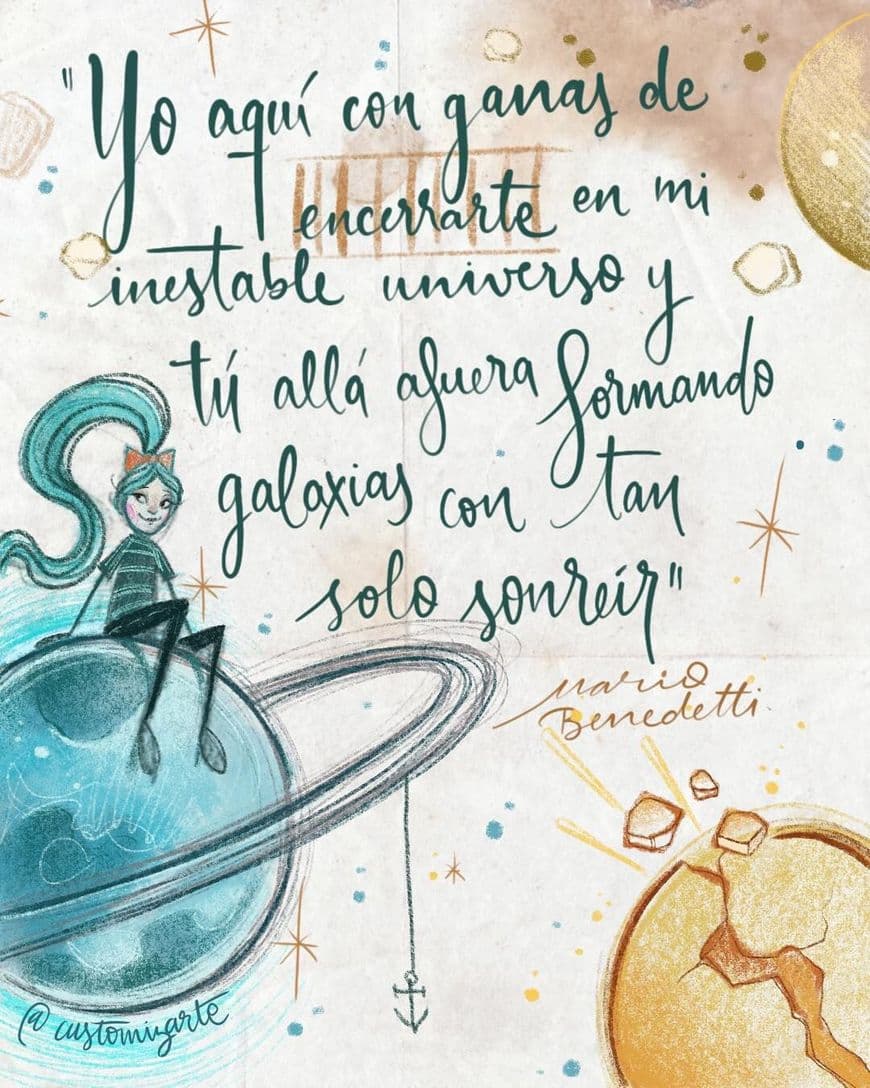 "Yo aquí con ganas de
encerrarte en mi
inestable universo y
tú allá afuera formando
galaxias con tan
solo sonreír"
Mario
Benedetti
@customizarte